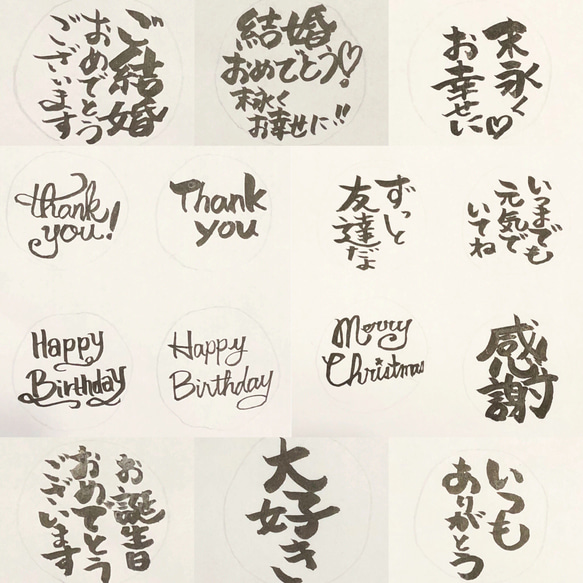 ご結婚
おめでとう
ございます
結婚
おめでとう♡!
末永く
お幸せに!!
末永く♡
お幸せに
thank
you!
Thank
you
ずっと
友達だよ
いつまでも
元気で
いてね
Happy
Birthday
Happy
Birthday
Merry
Christmas
感謝
お誕生日
おめでとう
ございます
大好き
いつも
ありがとう